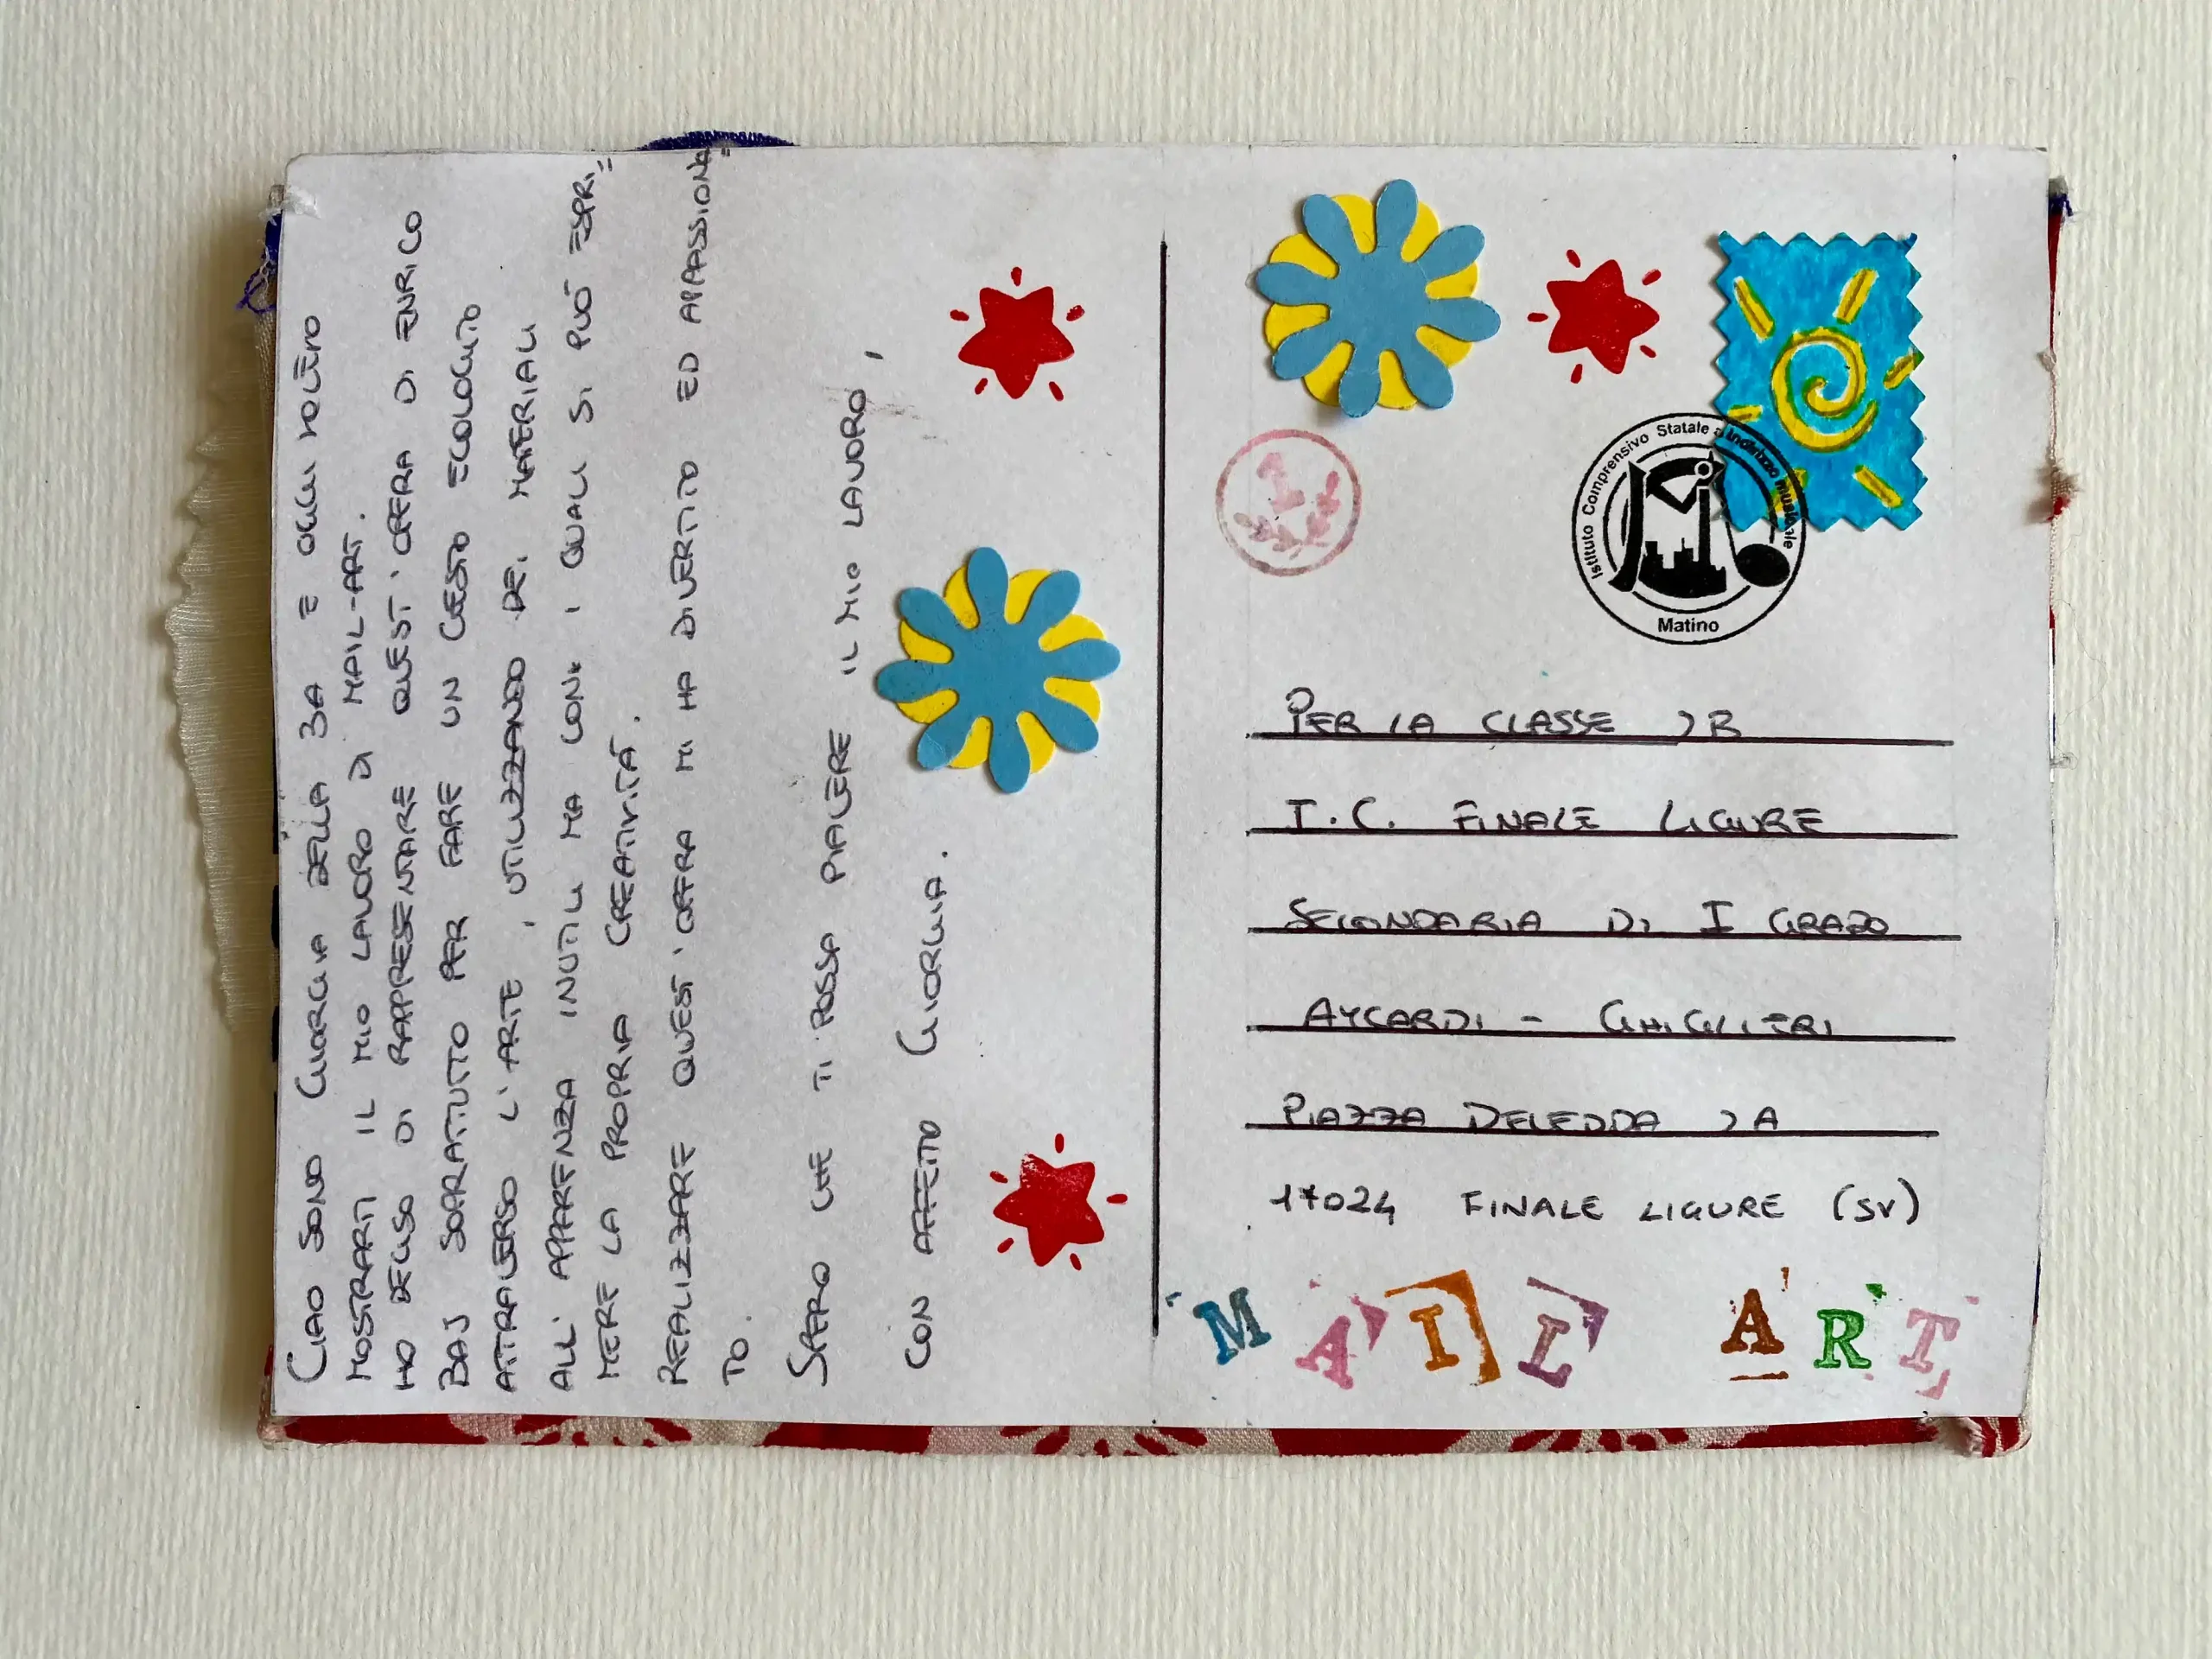 CIAO SONO GIORGIA DELLA 3A E OGGI VOLEVO
MOSTRARTI IL MIO LAVORO DI MAIL-ART.
HO DECISO DI RAPPRESENTARE QUEST'OPERA DI ENRICO
BAJ SOPRATTUTTO PER FARE UN GESTO ECOLOGICO
ATTRAVERSO L'ARTE, UTILIZZANDO DEI MATERIALI
ALL'APPARENZA INUTILI MA CON I QUALI SI PUÓ ESPRI=
MERE LA PROPRIA CREATIVITÁ.
REALIZZARE QUEST'OPERA MI HA DIVERTITO ED APPASSIONA=
TO.
SPERO CHE TI POSSA PIACERE IL MIO LAVORO,
CON AFFETTO GIORGIA.
1
Istituto Comprensivo Statale a Indirizzo musicale
Matino
PER LA CLASSE 2B
I.C. FINALE LIGURE
SECONDARIA DI I GRADO
AYCARDI - GHIGLIERI
PIAZZA DELEDDA 2A
17024 FINALE LIGURE (SV)
MAIL ART